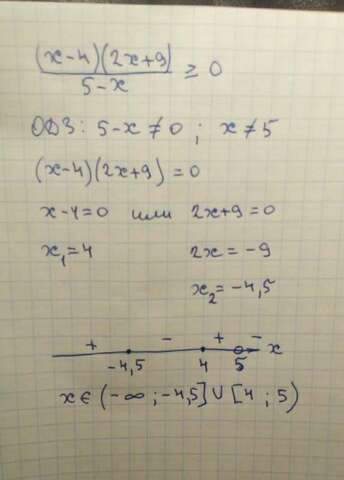 (x-4)(2x+9)
5-x
≥ 0
ОДЗ: 5-x ≠ 0 ; x ≠ 5
(x-4)(2x+9) = 0
x-4=0 или 2x+9=0
x₁=4 2x = -9
x₂ = -4,5
+ - + -
-4,5 4 5 x
x ∈ (-∞ ; -4,5] ∪ [4 ; 5)